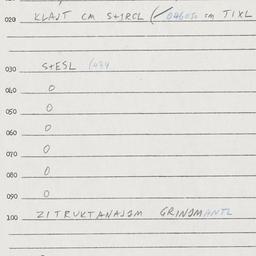 020 KLAJT CM S+IRCL (✓ 046050 cm TIXL
030 S+ESL (034
040 O
050 O
060 O
070 O
080 O
090 O
100 ZITRUKTANAJOM GRINDMANTL